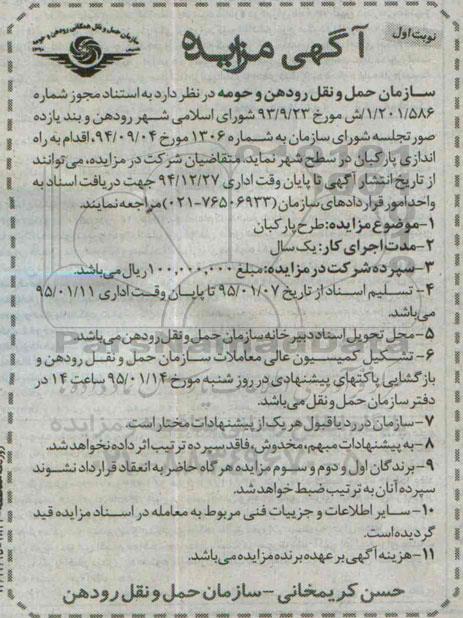 نوبت اول
آگهی مزایده
سازمان حمل و نقل همگانی رودهن و حومه
سازمان حمل و نقل رودهن و حومه در نظر دارد به استناد مجوز شماره
۱/۲۰۱/۵۸۶/ش مورخ ۹۳/۹/۲۳ شورای اسلامی شهر رودهن و بند یازده
صورتجلسه شورای سازمان به شماره ۱۳۰۶ مورخ ۹۴/۰۹/۰۴، اقدام به راه
اندازی پارکبان در سطح شهر نماید. متقاضیان شرکت در مزایده، می‌توانند
از تاریخ انتشار آگهی تا پایان وقت اداری ۹۴/۱۲/۲۷ جهت دریافت اسناد به
واحد امور قراردادهای سازمان (۷۶۵۰۶۹۳۳-۰۲۱) مراجعه نمایند.
۱-موضوع مزایده: طرح پارکبان
۲-مدت اجرای کار: یک سال
۳-سپرده شرکت در مزایده: مبلغ ۱۰۰,۰۰۰,۰۰۰ ریال می‌باشد.
۴-تسلیم اسناد از تاریخ ۹۵/۰۱/۰۷ تا پایان وقت اداری ۹۵/۰۱/۱۱
می‌باشد.
۵-محل تحویل اسناد دبیرخانه سازمان حمل و نقل رودهن می‌باشد.
۶-تشکیل کمیسیون عالی معاملات سازمان حمل و نقل رودهن و
بازگشایی پاکتهای پیشنهادی در روز شنبه مورخ ۹۵/۰۱/۱۴ ساعت ۱۴ در
دفتر سازمان حمل و نقل می‌باشد.
۷-سازمان در رد یا قبول هر یک از پیشنهادات مختار است.
۸-به پیشنهادات مبهم، مخدوش، فاقد سپرده ترتیب اثر داده نخواهد شد.
۹-برندگان اول و دوم و سوم مزایده هرگاه حاضر به انعقاد قرارداد نشوند
سپرده آنان به ترتیب ضبط خواهد شد.
۱۰-سایر اطلاعات و جزییات فنی مربوط به معامله در اسناد مزایده قید
گردیده است.
۱۱-هزینه آگهی بر عهده برنده مزایده می‌باشد.
حسن کریمخانی -سازمان حمل و نقل رودهن